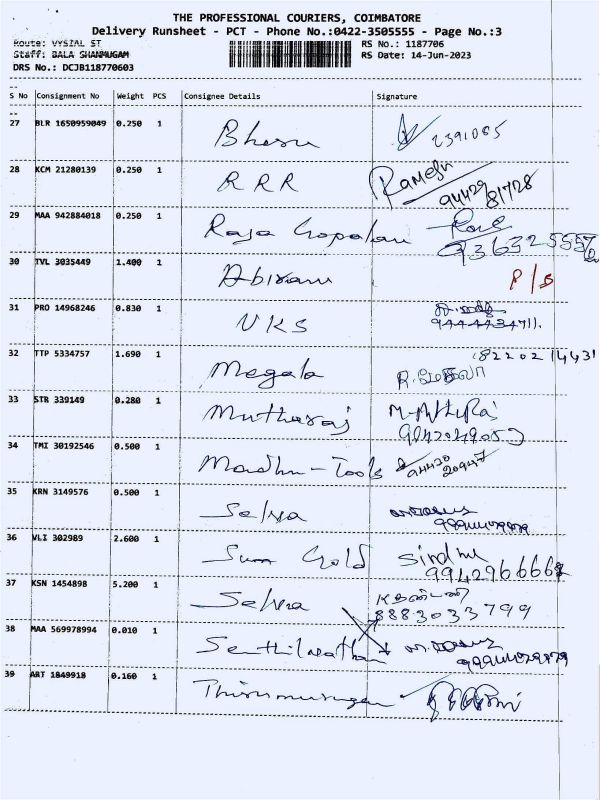 THE PROFESSIONAL COURIERS, COIMBATORE
Delivery Runsheet - PCT - Phone No.:0422-3505555 - Page No.:3
Route: VYSIAL ST
RS No.: 1187706
Staff: BALA SHANMUGAM
RS Date: 14-Jun-2023
DRS No.: DCJB118770603
S No Consignment No Weight PCS Consignee Details Signature
27 BLR 1650959049 0.250 1 2391065
28 KCM 21280139 0.250 1 RRR Ramesh
94429 81728
29 MAA 942884018 0.250 1 Raja Gopalan
30 TVL 3035449 1.400 1 Abirami P/S
31 PRO 14968246 0.830 1 VKS
9444434711.
82202 14431
32 TTP 5334757 1.690 1 Megala R.மேகலா
33 STR 339149 0.280 1 Mutharaj M.MuthuRaj
34 TMI 30192546 0.500 1 Madhu - Tools 94420
20947
35 KRN 3149576 0.500 1 Selva
36 VLI 302989 2.600 1 Sum Gold Sindhu
37 KSN 1454898 5.200 1 Selva
8883033799
38 MAA 569978994 0.010 1 Senthilnathan
39 ART 1849918 0.160 1 Thirumurugan